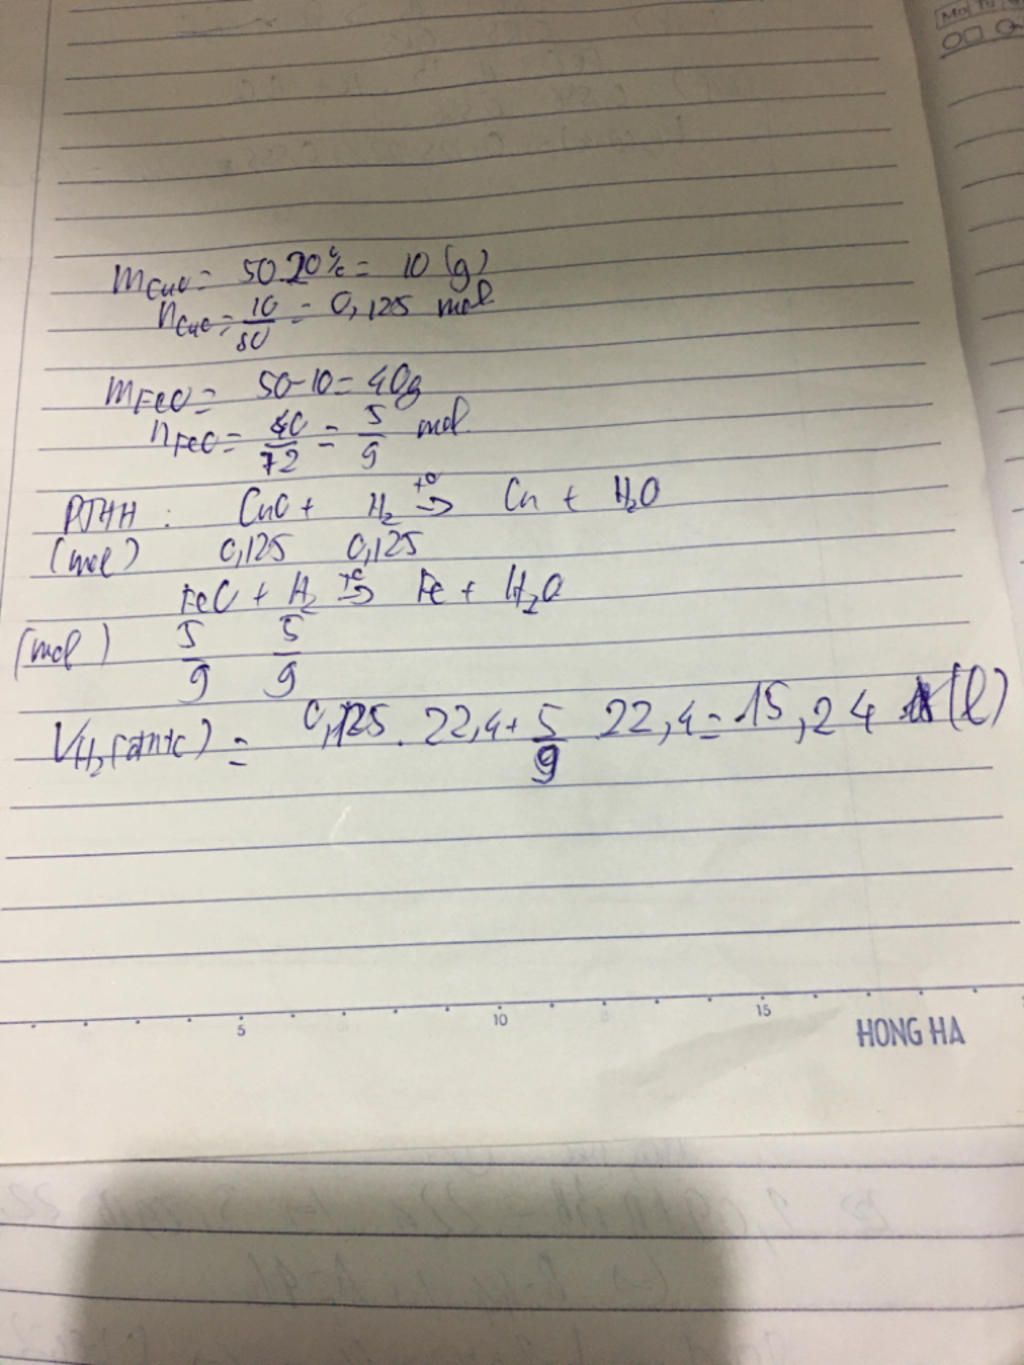 mCuO = 50.20% = 10 (g)
nCuO = 10/80 = 0,125 mol
mFeO = 50-10 = 40g
nFeO = 40/72 = 5/9 mol
PTHH : CuO + H₂ t°→ Cu + H₂O
(mol) 0,125 0,125
FeO + H₂ t°→ Fe + H₂O
(mol) 5/9 5/9
VH₂(đktc) = 0,125 . 22,4 + 5/9 22,4 = 15,24 (l)
5 10 15
HONG HA